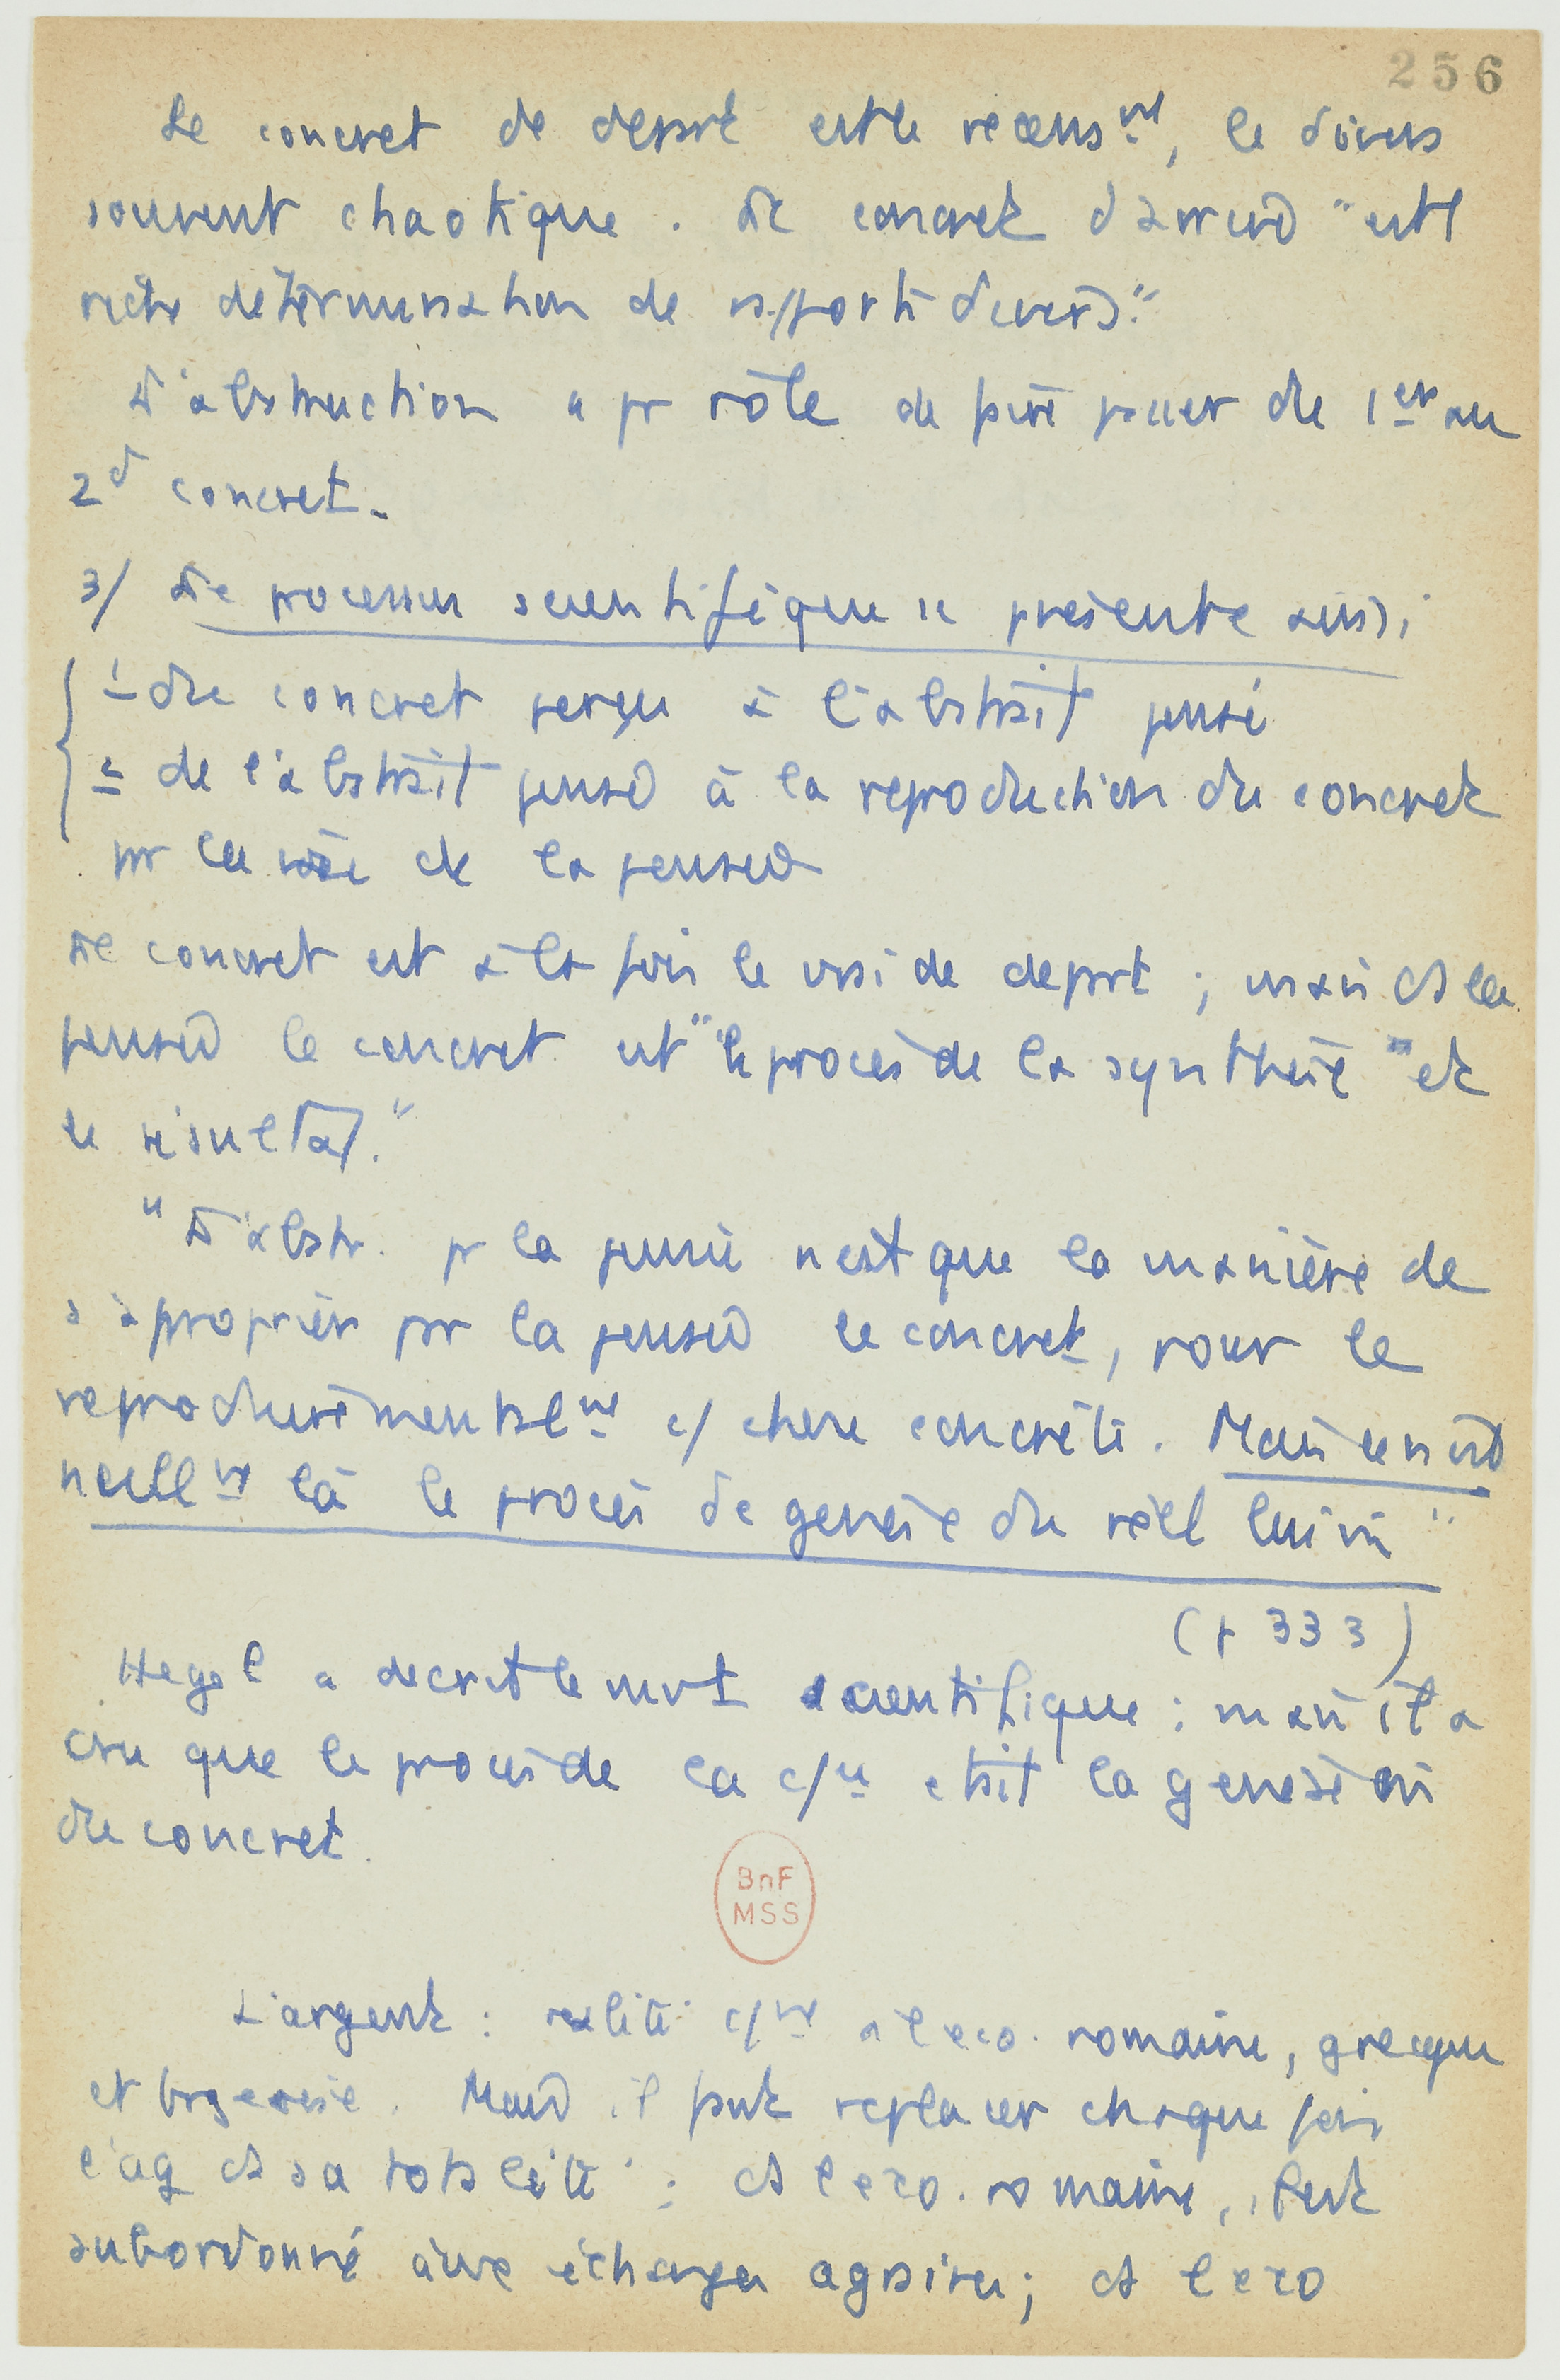 256
Le concret de depart est le recensmt, le divers
souvent chaotique. Le concret d'arrivé "est l
riche détermination de rapports divers."
L'abstraction a pr rôle de faire passer du 1er au
2d concret.
3/ Le processus scientifique se présente ainsi
- du concret perçu à l'abstrait pensé
= de l'abstrait pensé à la reproduction du concret
par la voie de la pensée
Le concret est à la fois le vrai de depart ; mais ds la
pensée le concret est "le procès de la synthèse" et
le résultat."
"L'abstr. pr la pensée n'est que la manière de
s'aproprier par la pensée le concret, pour le
reproduire mentalmt c/ chose concrète. Mais ce n'est
nullmt là le procès de genèse du réel lui m"
(p 333)
Hegel a decrit le mvt scientifique : mais il a
cru que le procès de la c/ce etait la genèse
du concret.
BnF
MSS
L'argent : realité c/ne a l'eco. romaine, grecque
et brgeoise. Mais il faut replacer chaque fois
l'ag ds sa totalité : ds l'eco. romaine, il est
subordonné à une échanges agraires ; ds l'eco